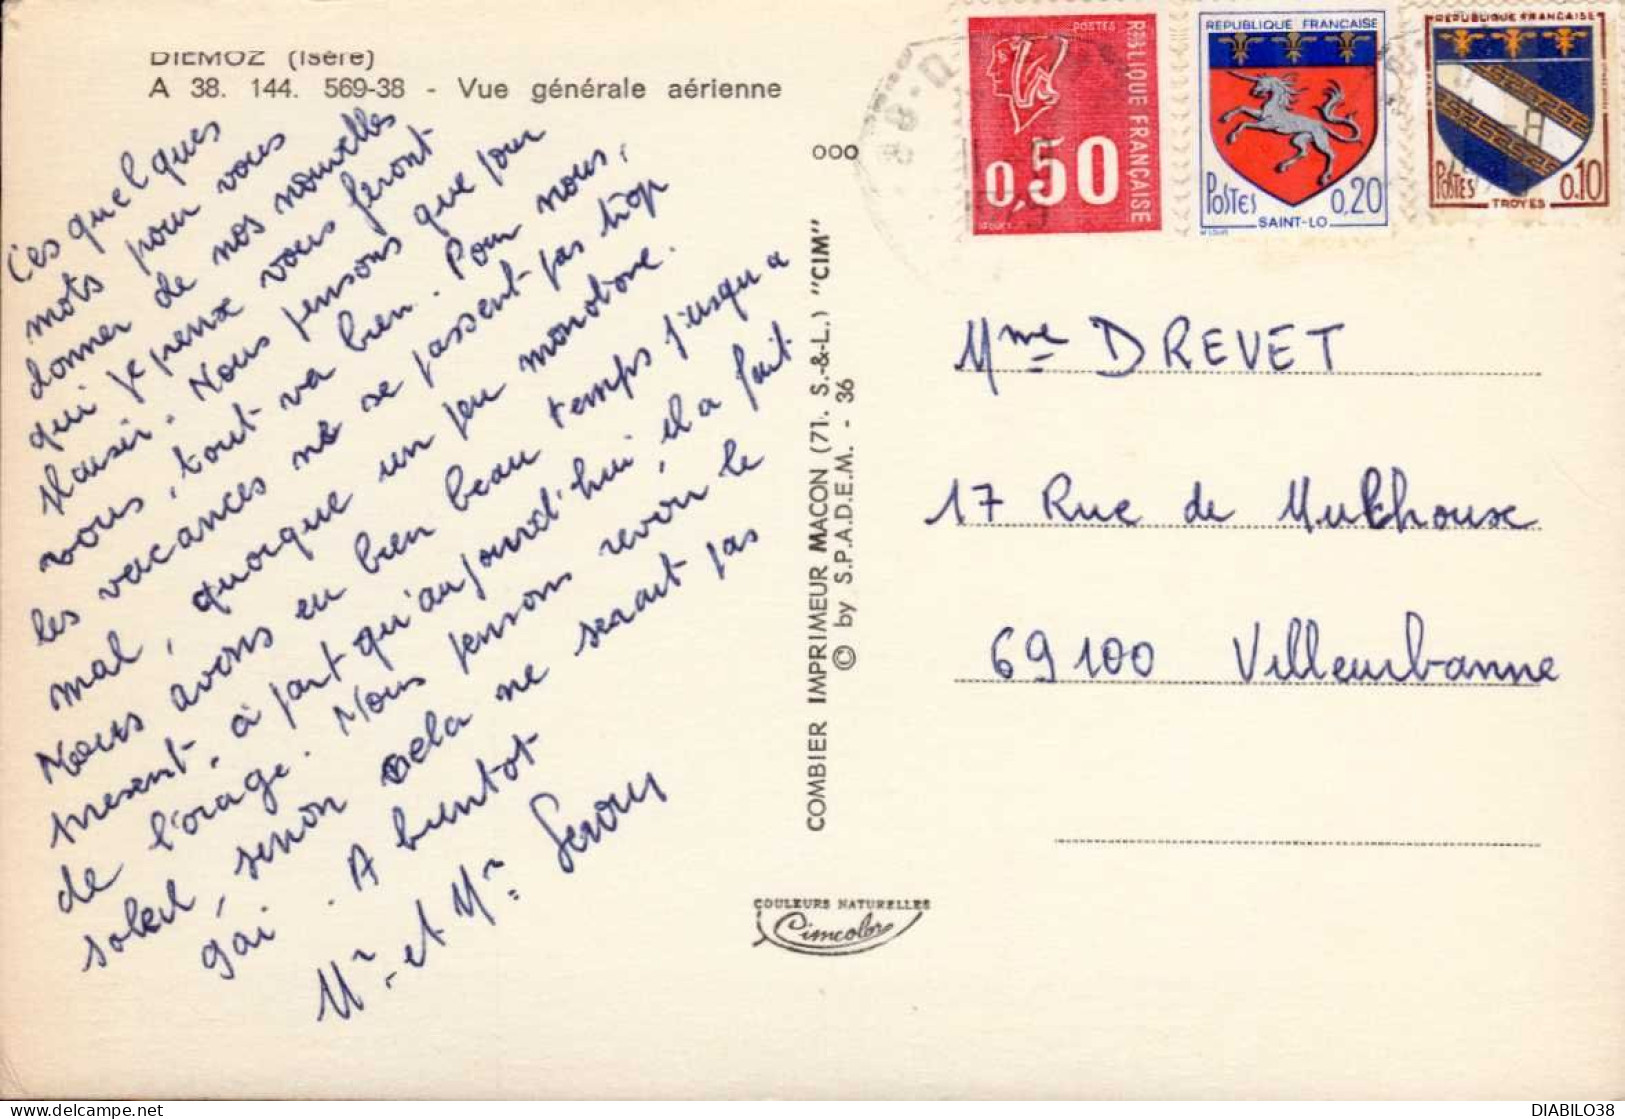 DIEMOZ (Isère)
A 38. 144. 569-38 - Vue générale aérienne
Ces quelques
mots pour vous
donner de nos nouvelles
qui je pense vous feront
plaisir. Nous pensons que pour
vous, tout va bien. Pour nous,
les vacances ne se passent pas trop
mal, quoique un peu monotone.
Nous avons eu bien beau temps jusqu'a
present, à part qu'aujourd'hui, il a fait
de l'orage. Nous pensons revoir le
soleil, sinon cela ne serait pas
gai. A bientot
Mr et Mr
000
COMBIER IMPRIMEUR MACON (71. S.-&-L.) "CIM"
© by S.P.A.D.E.M. - 36
COULEURS NATURELLES
Cimcolor
POSTES
RÉPUBLIQUE FRANÇAISE
0,50
REPUBLIQUE FRANÇAISE
POSTES 0,20
SAINT-LO
REPUBLIQUE FRANÇAISE
POSTES 0.10
TROYES
Mme DREVET
17 Rue de Mulhouse
69100 Villeurbanne
DIABILO38